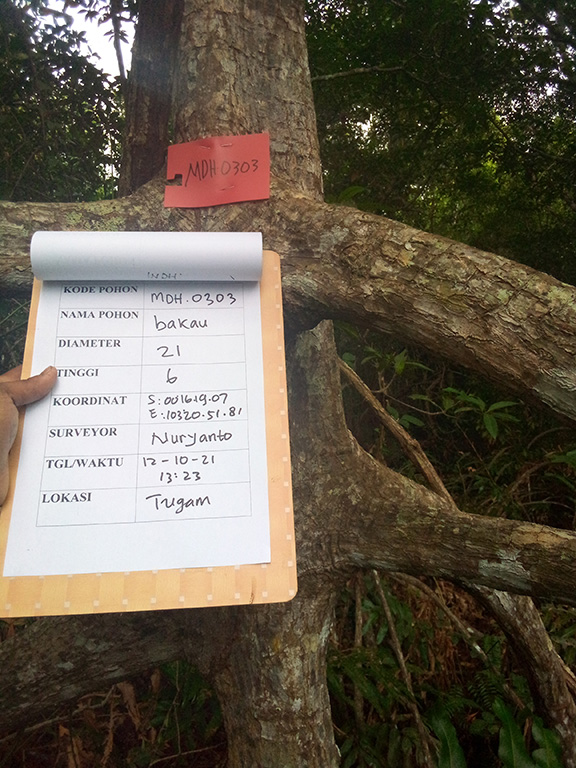 MDH.0303
KODE POHON MDH.0303
NAMA POHON bakau
DIAMETER 21
TINGGI 6
KOORDINAT S:001619.07
E:10320.51.81
SURVEYOR Nuryanto
TGL/WAKTU 12-10-21
13:23
LOKASI Tugam